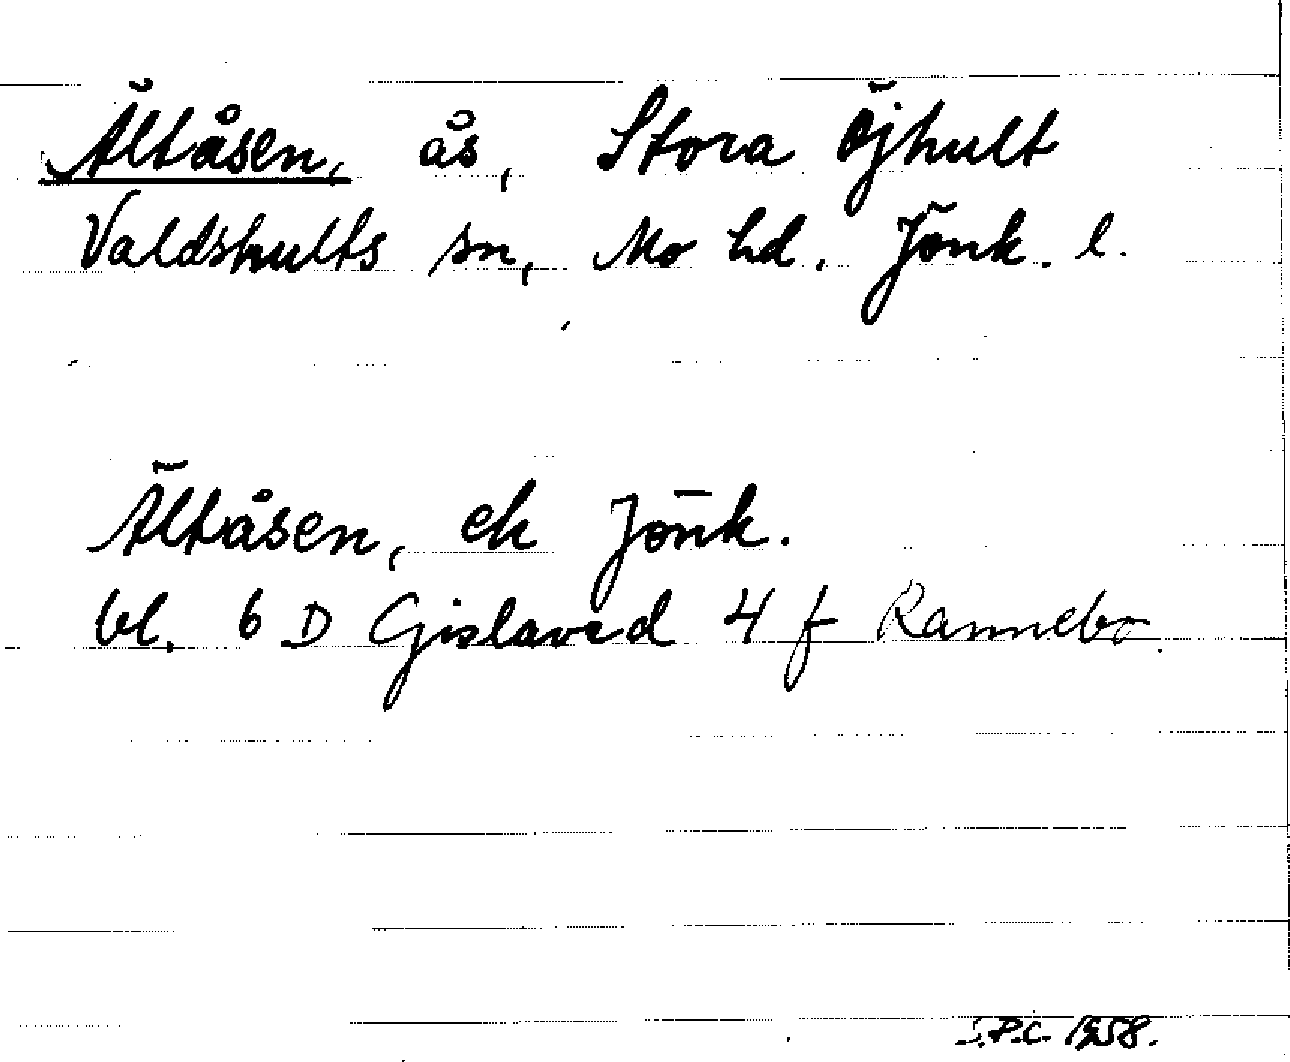 Ältåsen, ås, Stora Öjhult
Valdshults sn, Mo hd. Jönk. l.
Ältåsen, ek Jönk.
bl. 6 D Gislaved 4 f Rannebo
S.P.C. 1958.